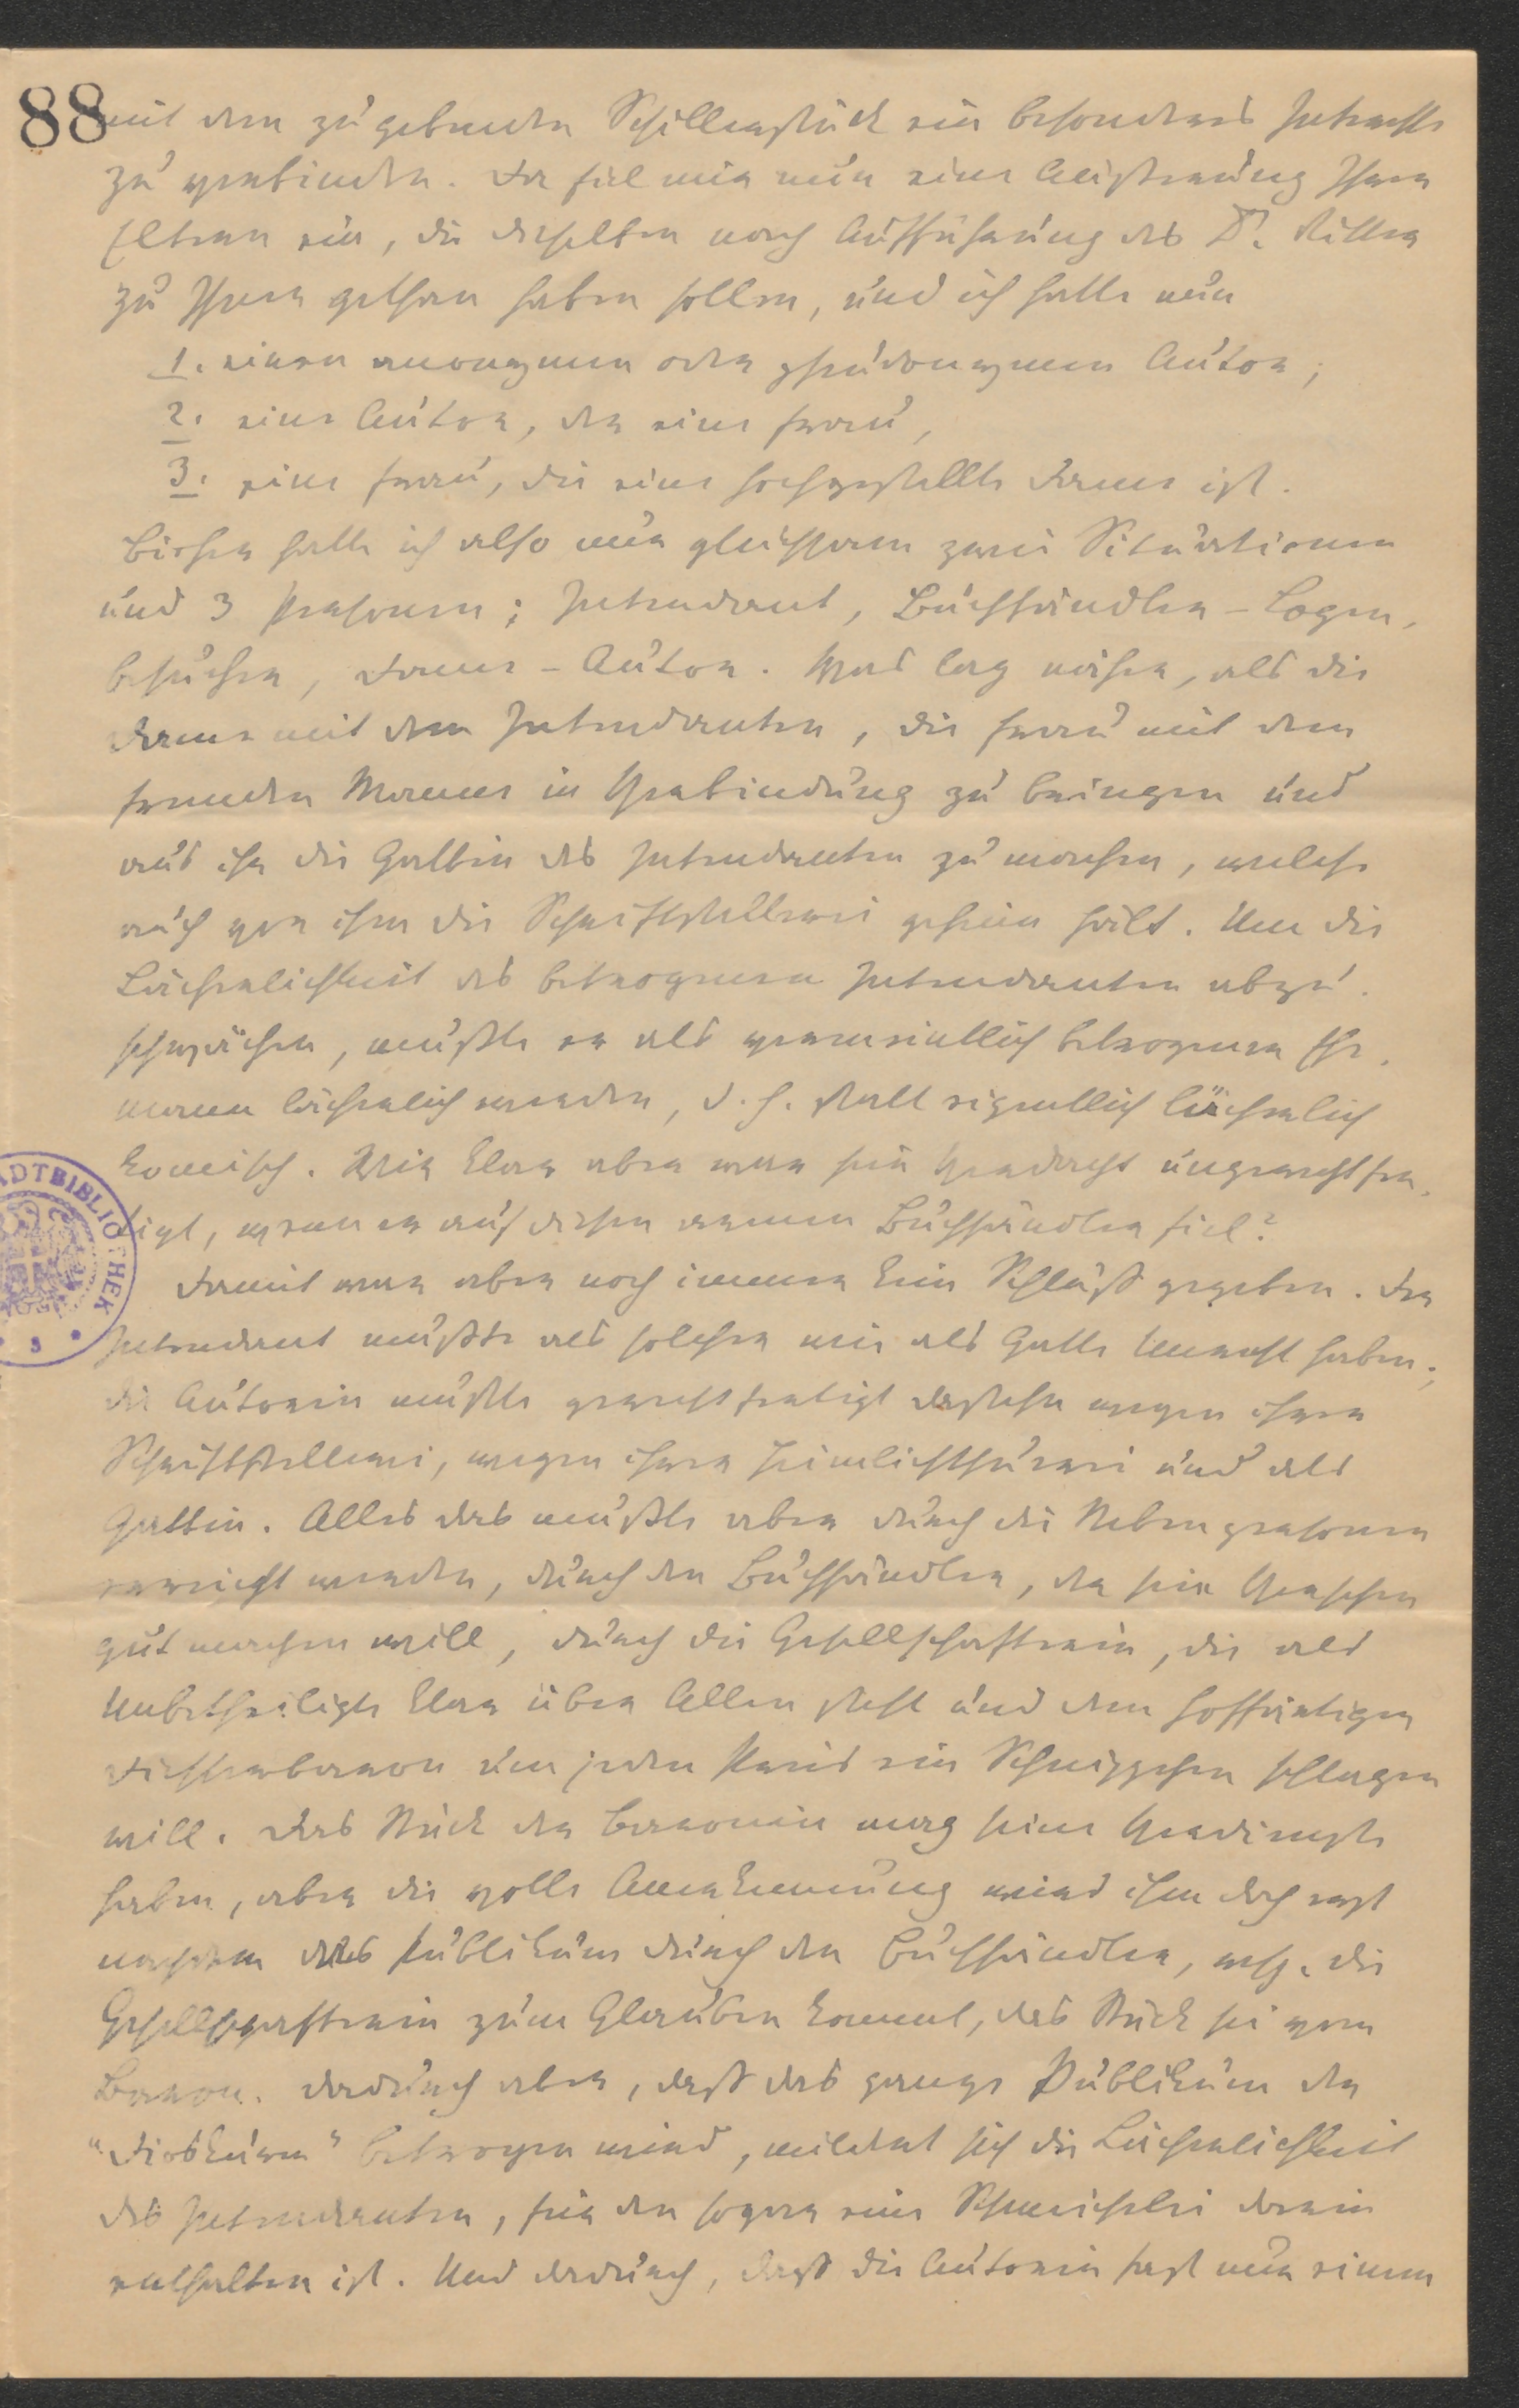 88
mit dem zu gebenden Schillerstück ein besonderes Interesse
zu verbinden. Da fiel mir nun eine Aeußerung Ihrer
Eltern ein, die dieselben nach Aufführung des Dr. Ritter
zu Ihnen gethan haben sollen, und ich hatte nun
1. einen anonymen oder pseudonymen Autor;
2. eine Autor, der eine Frau,
3. eine Frau, die eine hochgestellte Dame ist.
Bisher hatte ich also nur gleichsam zwei Situationen
und 3 Personen; Intendant, Buchhändler-Logen-
besucher, Dame-Autor. Was lag näher, als die
Dame mit dem Intendanten, die Frau mit dem
fremden Manne in Verbindung zu bringen und
aus ihr die Gattin des Intendanten zu machen, welche
auch vor ihm die Schriftstellerei geheim hält. Um die
Lächerlichkeit des betrogenen Intendanten abzu-
schwächen, mußte er als vermeintlich betrogener Ehe-
mann lächerlich werden, d. h. statt eigentlich lächerlich
komisch. Wie klar aber war sein Verdacht ungerechtfer-
tigt, wenn er auf diesen armen Buchhändler fiel?
Damit war aber noch immer kein Schluß gegeben. Der
Intendant mußte als solcher wie als Gatte Unrecht haben;
die Autorin mußte gerechtfertigt dastehn wegen ihrer
Schriftstellerei, wegen ihrer Heimlichthuerei und als
Gattin. Alles das mußte aber durch die Nebenpersonen
erreicht werden, durch den Buchhändler, der sein Versehen
gut machen will, durch die Gesellschafterin, die als
Unbetheiligte klar über Allen steht und dem hoffärtigen
Dichterbaron um jeden Preis ein Schnippchen schlagen
will. Das Stück der Baronin mag seine Verdienste
haben, aber die volle Anerkennung wird ihm doch erst
nachdem das Publikum durch den Buchhändler, resp. die
Gesellschafterin zum Glauben kommt, das Stück sei vom
Baron. Dadurch aber, daß das ganze Publikum der
"Dioskuren" betrogen wird, mildert sich die Lächerlichkeit
des Intendanten, für den sogar eine Schmeichelei darin
enthalten ist. Und dadurch, daß die Autorin fast nur einem
STADTBIBLIOTHEK